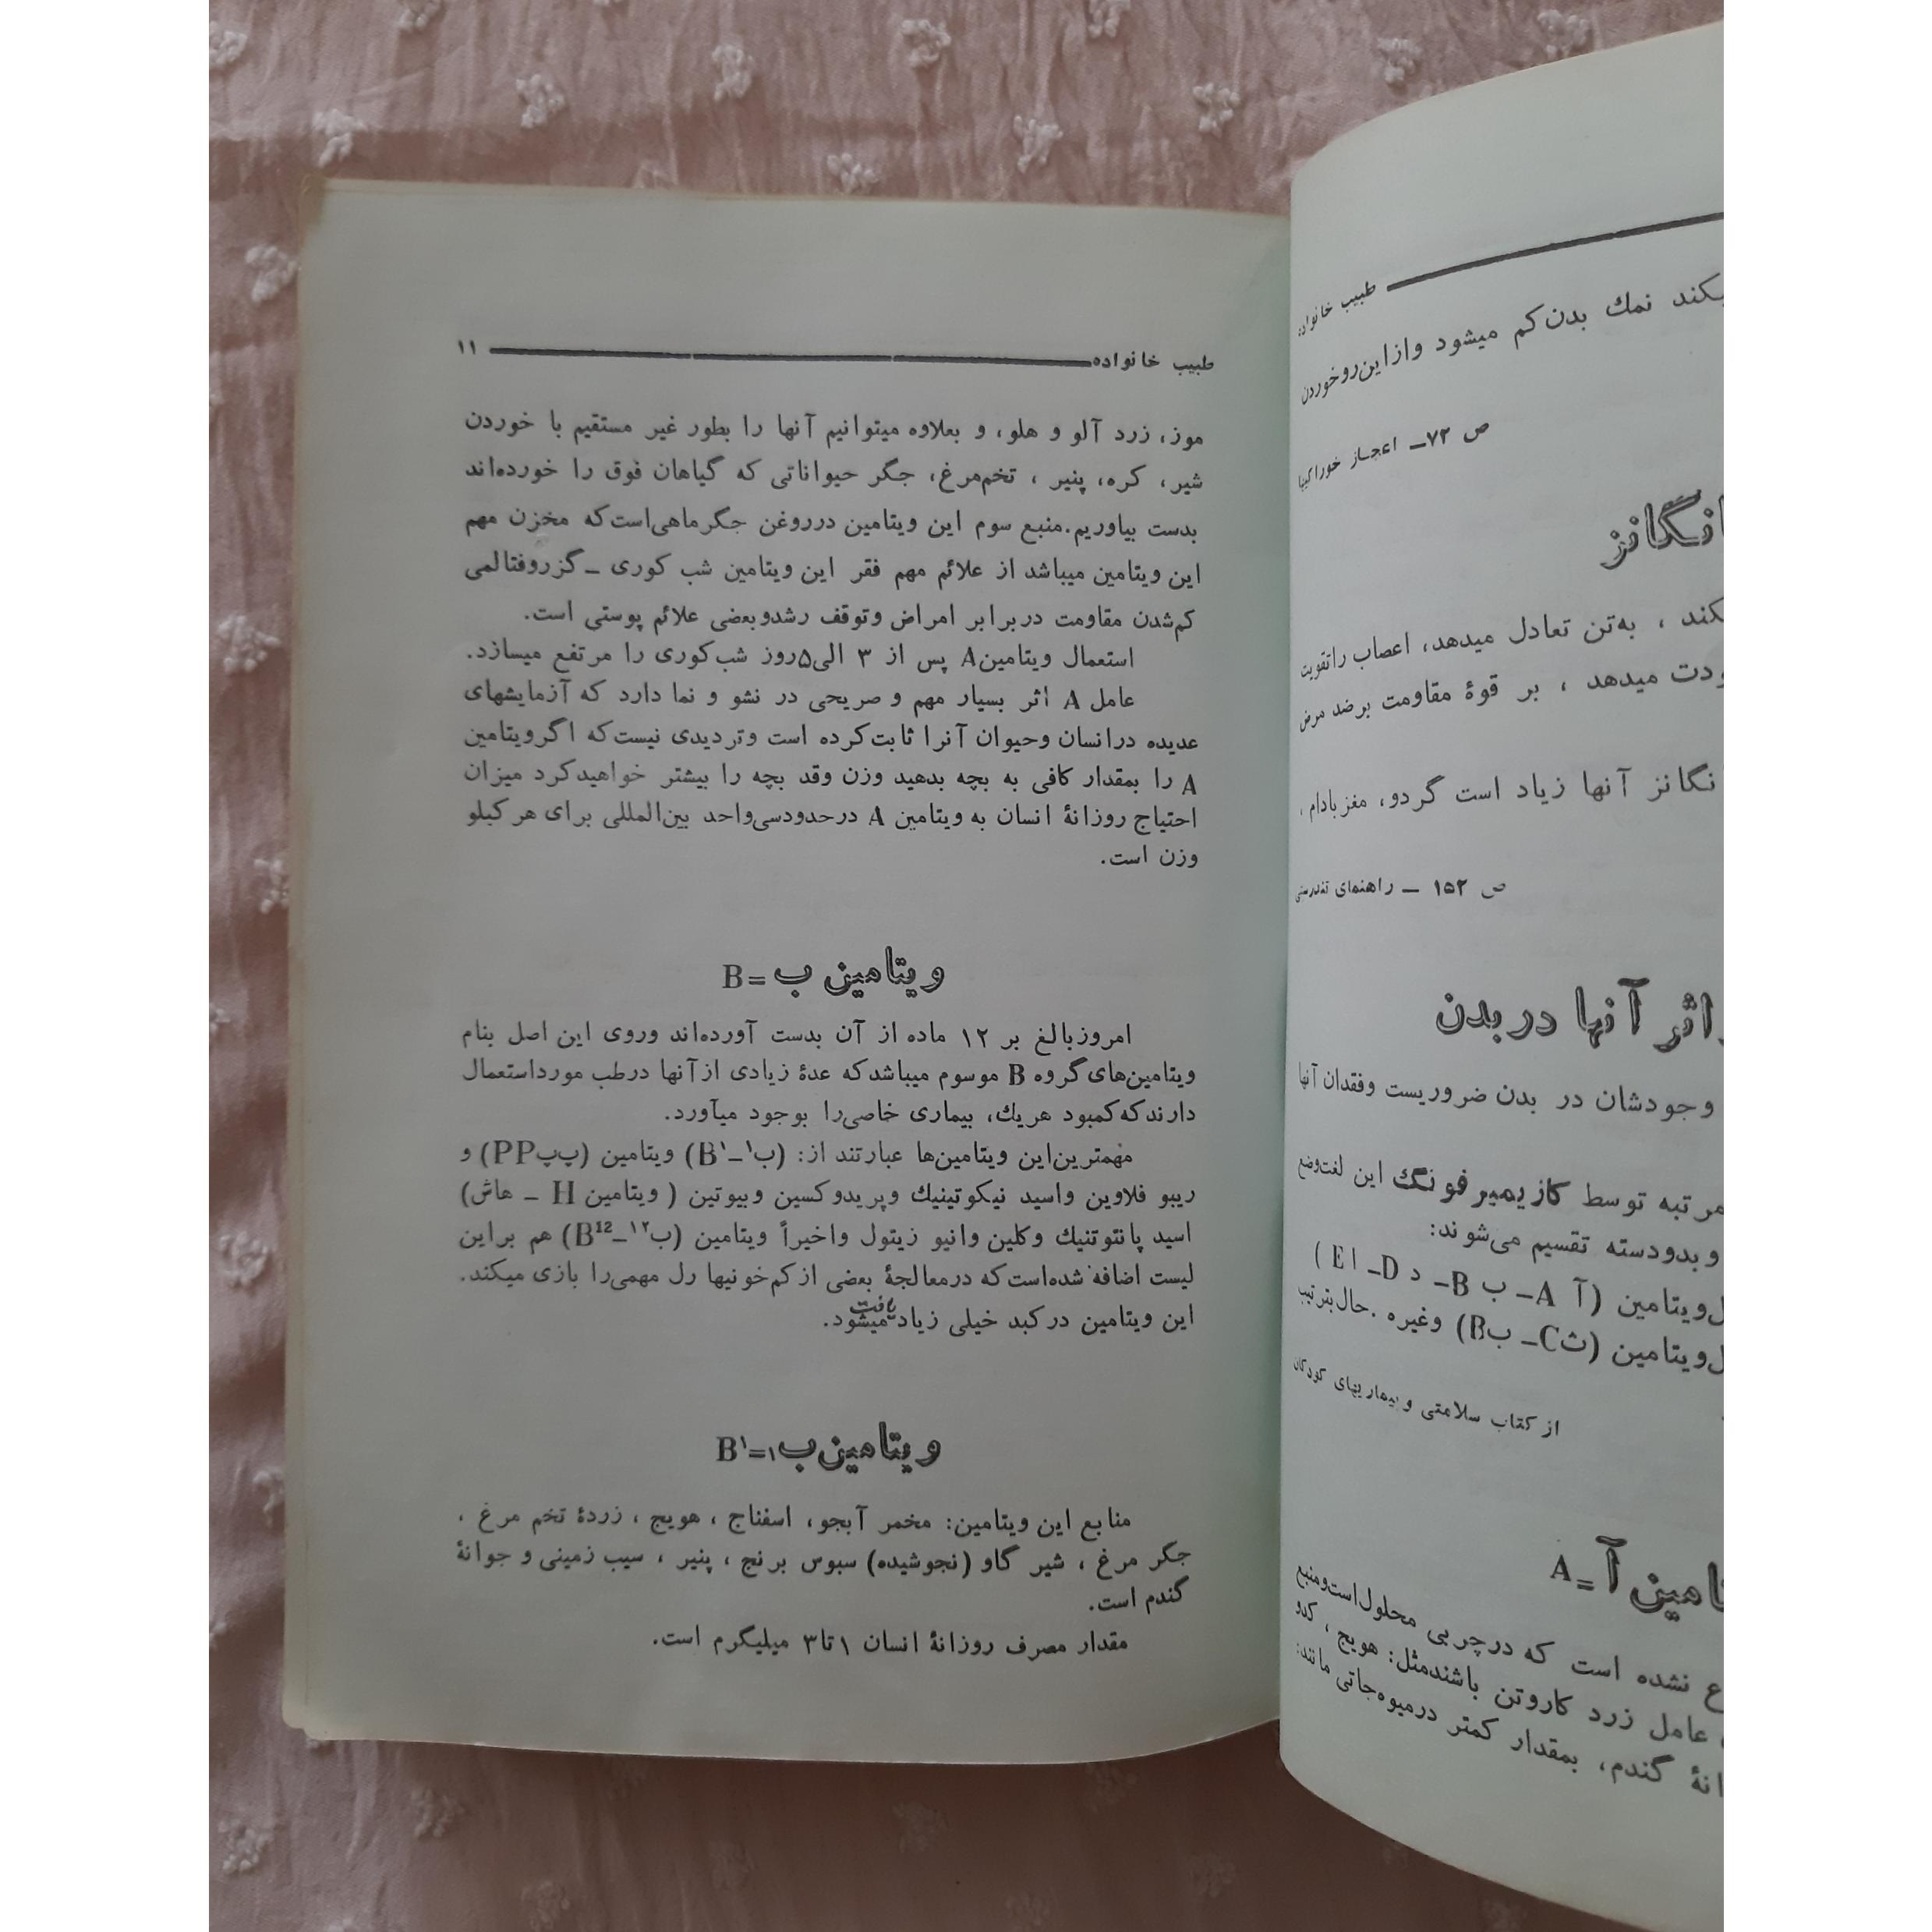 طبیب خانواده
یکند نمك بدن‌کم میشود وازاین‌روخوردن
ص ۷۲ـ اعجاز خوراکیها
انگانز
کند ، به‌تن تعادل میدهد، اعصاب راتقویت
ودت میدهد ، بر قوۀ مقاومت برضد مرض
نگانز آنها زیاد است گردو، مغزبادام ،
ص ۱۵۲ ـ راهنمای تندرستی
اثر آنها دربدن
وجودشان در بدن ضروریست وفقدان آنها
مرتبه توسط کازیمیرفونگ این لغت‌وضع
وبدودسته تقسیم می‌شوند:
ل‌ویتامین (آ A ـ ب B ـ د D ـ ا E)
ل‌ویتامین (ث‌C ـ ب‌B) وغیره .حال‌بترتیب
از کتاب سلامتی و بیماریهای کودکان
تامین آ = A
ع نشده است که درچربی محلول‌است‌ومنبع
عامل زرد کاروتن باشندمثل: هویج ، کدو
انۀ گندم، بمقدار کمتر درمیوه‌جاتی مانند:
طبیب خانواده ۱۱
موز، زرد آلو و هلو، و بعلاوه میتوانیم آنها را بطور غیر مستقیم با خوردن
شیر، کره، پنیر ، تخم‌مرغ، جگر حیواناتی که گیاهان فوق را خورده‌اند
بدست بیاوریم.منبع سوم این ویتامین درروغن جگرماهی‌است‌که مخزن مهم
این ویتامین میباشد از علائم مهم فقر این ویتامین شب کوری ـ گزروفتالمی
کم‌شدن مقاومت دربرابر امراض وتوقف رشدوبعضی علائم پوستی است.
استعمال ویتامینA پس از ۳ الی۵روز شب‌کوری را مرتفع میسازد.
عامل A اثر بسیار مهم و صریحی در نشو و نما دارد که آزمایشهای
عدیده درانسان وحیوان آنرا ثابت‌کرده است وتردیدی نیست‌که اگرویتامین
A را بمقدار کافی به بچه بدهید وزن وقد بچه را بیشتر خواهیدکرد میزان
احتیاج روزانۀ انسان به ویتامین A درحدودسی‌واحد بین‌المللی برای هرکیلو
وزن است.
ویتامین ب = B
امروزبالغ بر ۱۲ ماده از آن بدست آورده‌اند وروی این اصل بنام
ویتامین‌های‌گروه B موسوم میباشدکه عدۀ زیادی ازآنها درطب مورداستعمال
دارندکه‌کمبود هریك، بیماری خاصی‌را بوجود میآورد.
مهمترین‌این ویتامین‌ها عبارتند از: (ب۱ـB۱) ویتامین (پ‌پPP) و
ریبو فلاوین واسید نیکوتینیك وپریدوکسین وبیوتین ( ویتامین H ـ هاش)
اسید پانتوتنیك وکلین وانیو زیتول واخیراً ویتامین (ب۱۲ـB12) هم براین
لیست اضافه شده‌است‌که درمعالجۀ بعضی ازکم‌خونیها رل مهمی‌را بازی میکند.
این ویتامین درکبد خیلی زیاد یافت میشود.
ویتامین‌ب۱=B۱
منابع این ویتامین: مخمر آبجو، اسفناج ، هویج ، زردۀ تخم مرغ ،
جگر مرغ ، شیر گاو (نجوشیده) سبوس برنج ، پنیر ، سیب زمینی و جوانۀ
گندم است.
مقدار مصرف روزانۀ انسان ۱تا۳ میلیگرم است.